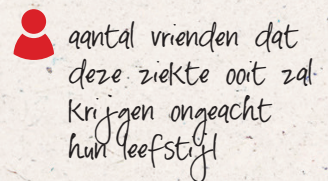 aantal vrienden dat
deze ziekte ooit zal
krijgen ongeacht
hun leefstijl